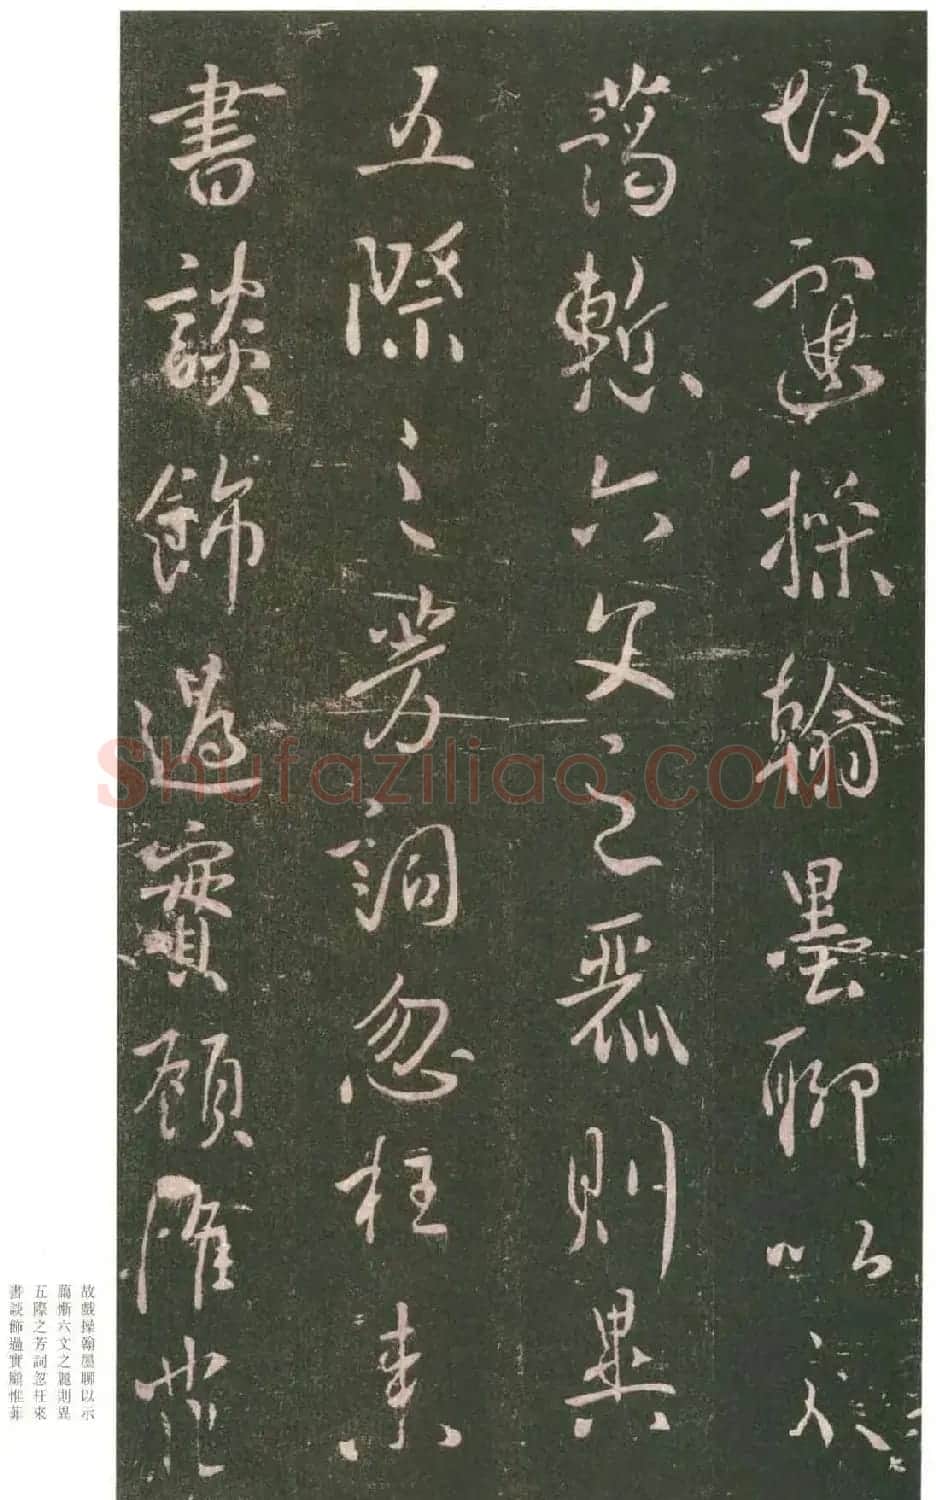 故戲操翰墨聊以示
藹慙六文之麗則異
五際之芳詞忽枉來
書談飾過實顧惟菲
故戲操翰墨聊以示
藹慚六文之麗則異
五際之芳詞忽枉來
書談飾過實顧惟菲
Shufaziliao.COM